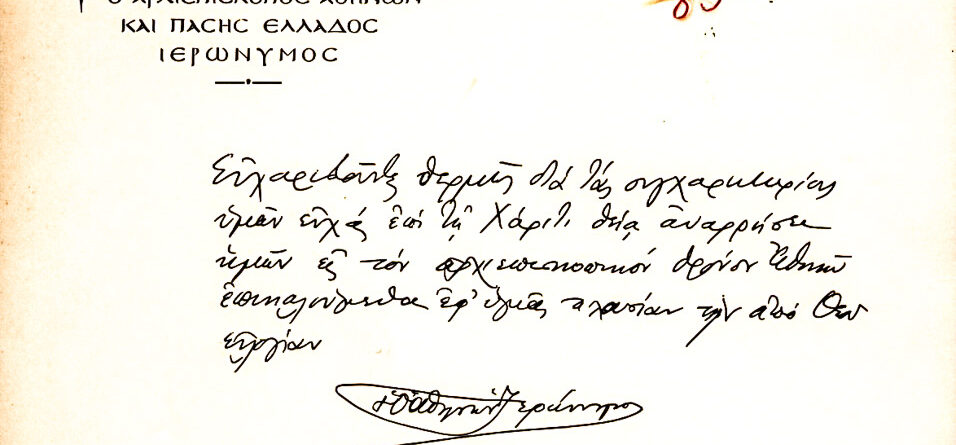 Ο ΑΡΧΙΕΠΙΣΚΟΠΟΣ ΑΘΗΝΩΝ
ΚΑΙ ΠΑΣΗΣ ΕΛΛΑΔΟΣ
ΙΕΡΩΝΥΜΟΣ
Εὐχαριστοῦντες θερμῶς διά τάς συγχαρητηρίους
ὑμῶν εὐχάς ἐπί τῇ Χάριτι θείᾳ ἀναρρήσει
ἡμῶν εἰς τόν ἀρχιεπισκοπικόν θρόνον Ἀθηνῶν
ἐπικαλούμεθα ἐφ' ὑμᾶς πλουσίαν τήν ἀπό Θεοῦ
εὐλογίαν
† Ὁ Ἀθηνῶν Ἱερώνυμος